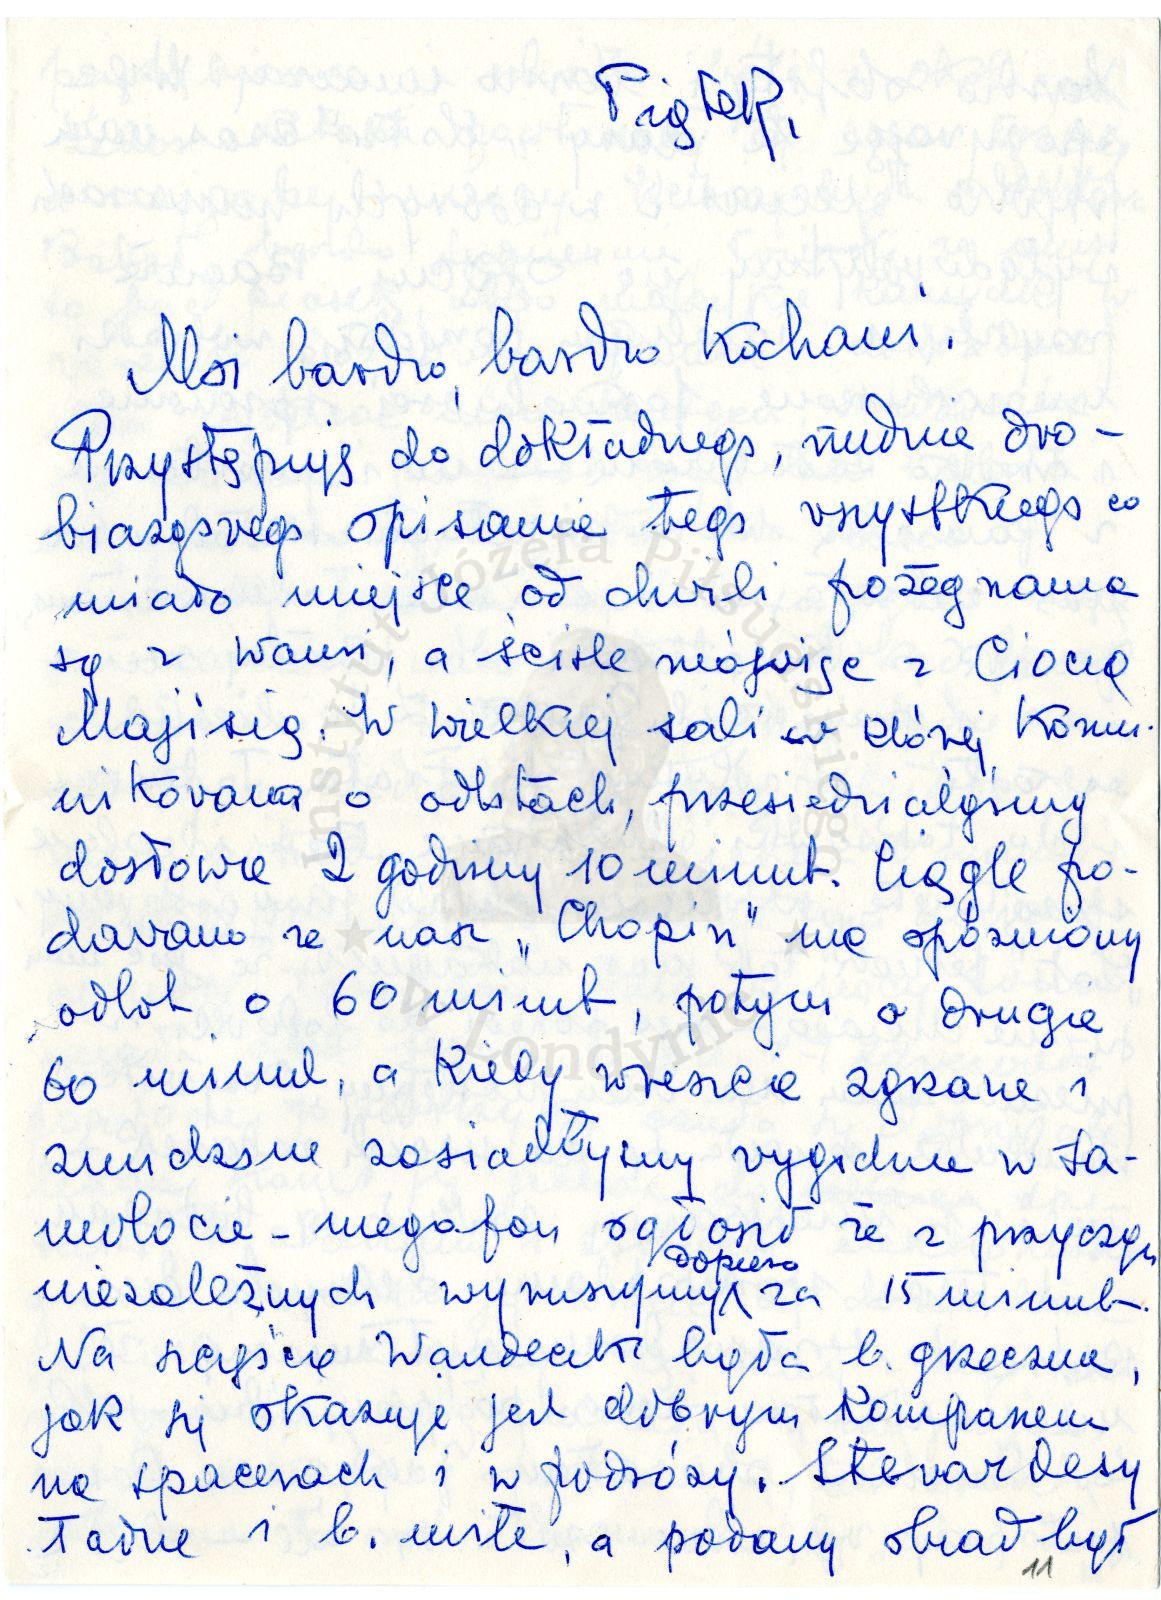 Piątek,
Moi bardzo, bardzo Kochani.
Przystępuję do dokładnego, nudnie dro-
biazgowego opisania tego wszystkiego co
miało miejsce od chwili pożegnania
się z Wami, a ściśle mówiąc z Ciocią
Majisią. W wielkiej sali w której komu-
nikowano o odlotach, przesiedziałyśmy
dosłownie 2 godziny 10 minut. Ciągle po-
dawano że nasz "Chopin" ma opóźniony
odlot o 60 minut, potym o drugie
60 minut, a kiedy wreszcie zgrzane i
znudzone zasiadłyśmy wygodnie w sa-
molocie - megafon ogłosił że z przyczyn
niezależnych wyruszymy dopiero za 15 minut.
Na szczęście Wandeczka była b. grzeczna,
jak się okazuje jest dobrym kompanem
na spacerach i w podróży. Stewardesy
ładne i b. miłe, a podany obiad był
11
Instytut Józefa Piłsudskiego
w Londynie